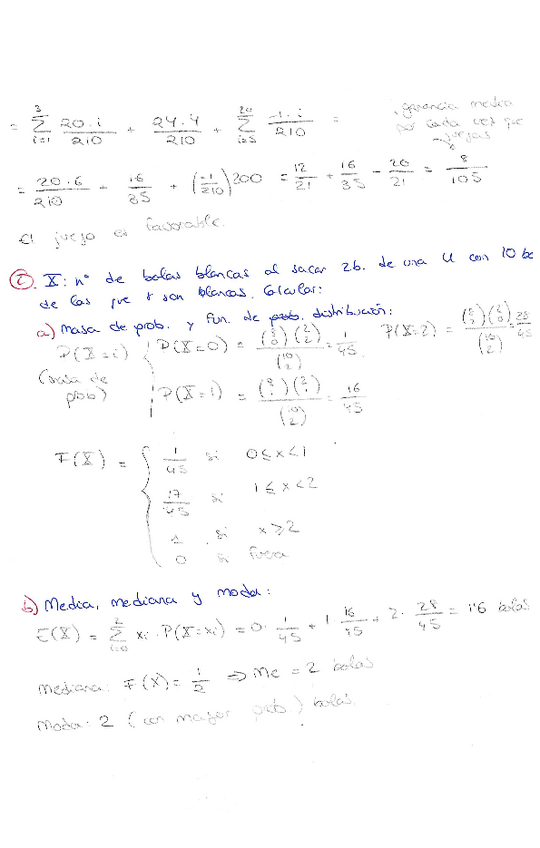 = \sum_{i=1}^{3} \frac{20·i}{210} + \frac{24·4}{210} + \sum_{i=5}^{20} \frac{-1·i}{210} =
ganancia media
por cada vez que
juegas
= \frac{20·6}{210} + \frac{16}{35} + (\frac{-1}{210})200 = \frac{12}{21} + \frac{16}{35} - \frac{20}{21} = \frac{8}{105}
El juego es favorable.
X: nº de bolas blancas al sacar 2b. de una U con 10 bo
de las que 8 son blancas. Calcular:
a) Masa de prob. y fun. de prob. distribución:
P(X=i) { P(X=0) = \frac{\binom{8}{0}\binom{2}{2}}{\binom{10}{2}} = \frac{1}{45} P(X=2) = \frac{\binom{8}{2}\binom{2}{0}}{\binom{10}{2}} = \frac{28}{45}
(masa de
prob) P(X=1) = \frac{\binom{8}{1}\binom{2}{1}}{\binom{10}{2}} = \frac{16}{45}
F(X) = { \frac{1}{45} si 0≤x<1
\frac{17}{45} si 1≤x<2
1 si x≥2
0 si fuera
b) Media, mediana y moda:
E(X) = \sum_{i=0}^{2} xi · P(X=xi) = 0·\frac{1}{45} + 1·\frac{16}{45} + 2·\frac{28}{45} = 1'6 bolas
mediana: F(X) = \frac{1}{2} ⇒ Me = 2 bolas
moda: 2 (con mayor prob) bolas.